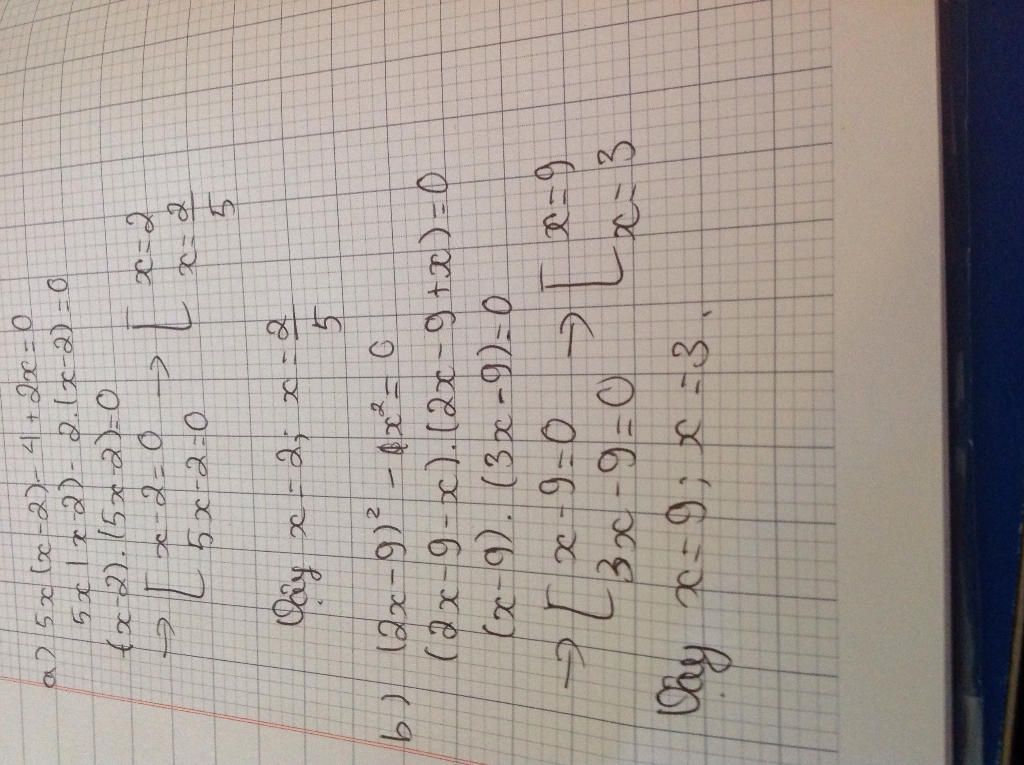 a) 5x(x-2)-4+2x=0
5x(x-2)-2.(x-2)=0
(x-2).(5x-2)=0
→ [ x-2=0 → [ x=2
5x-2=0 x=2/5
Vậy x=2; x=2/5
b) (2x-9)² - x² = 0
(2x-9-x).(2x-9+x)=0
(x-9).(3x-9)=0
→ [ x-9=0 → [ x=9
3x-9=0 x=3
Vậy x=9; x=3.